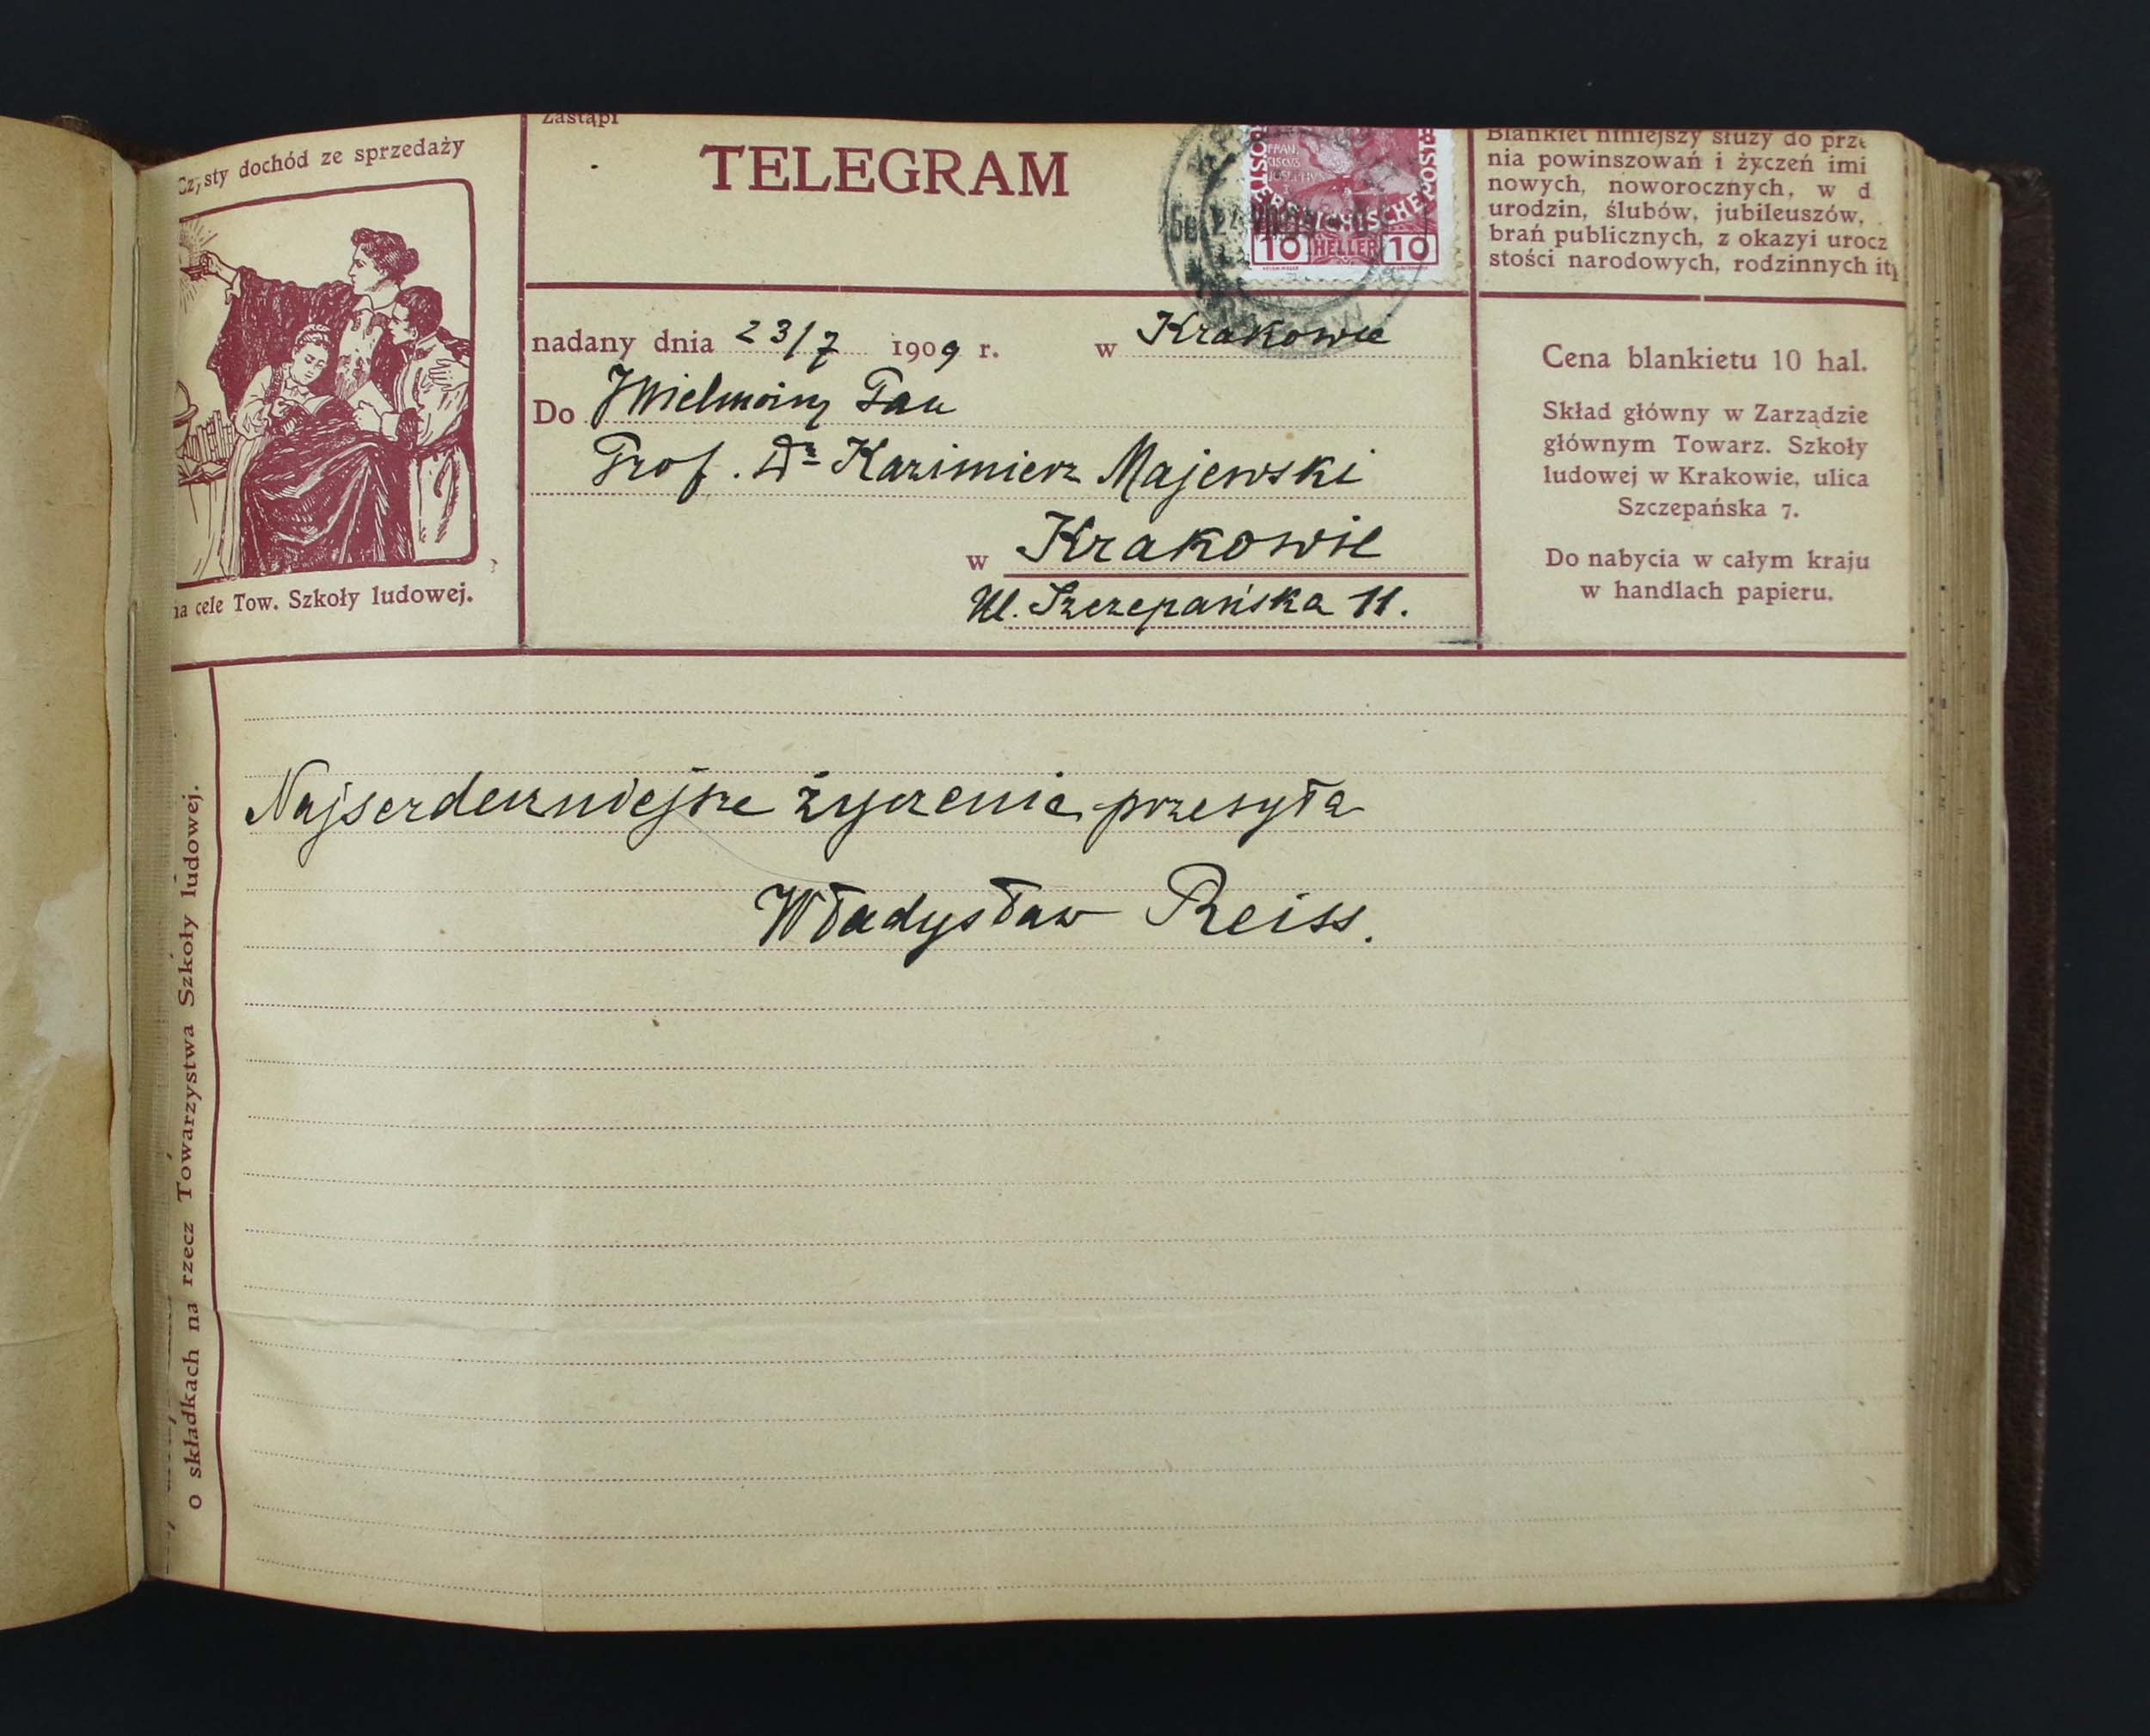 Czysty dochód ze sprzedaży
na cele Tow. Szkoły ludowej.
Zastąpi
TELEGRAM
FRAN
CISCUS
JOSEPHUS
I
10 HELLER 10
nadany dnia 23/7 1909 r. w Krakowie
Do Wielmożny Pan
Prof. Dr Kazimierz Majewski
w Krakowie
Ul. Szczepańska 11.
Blankiet niniejszy służy do prze
nia powinszowań i życzeń imi
nowych, noworocznych, w d
urodzin, ślubów, jubileuszów,
brań publicznych, z okazyi urocz
stości narodowych, rodzinnych itp
Cena blankietu 10 hal.
Skład główny w Zarządzie
głównym Towarz. Szkoły
ludowej w Krakowie, ulica
Szczepańska 7.
Do nabycia w całym kraju
w handlach papieru.
o składkach na rzecz Towarzystwa Szkoły ludowej.
Najserdeczniejsze życzenia przesyła
Władysław Reiss.